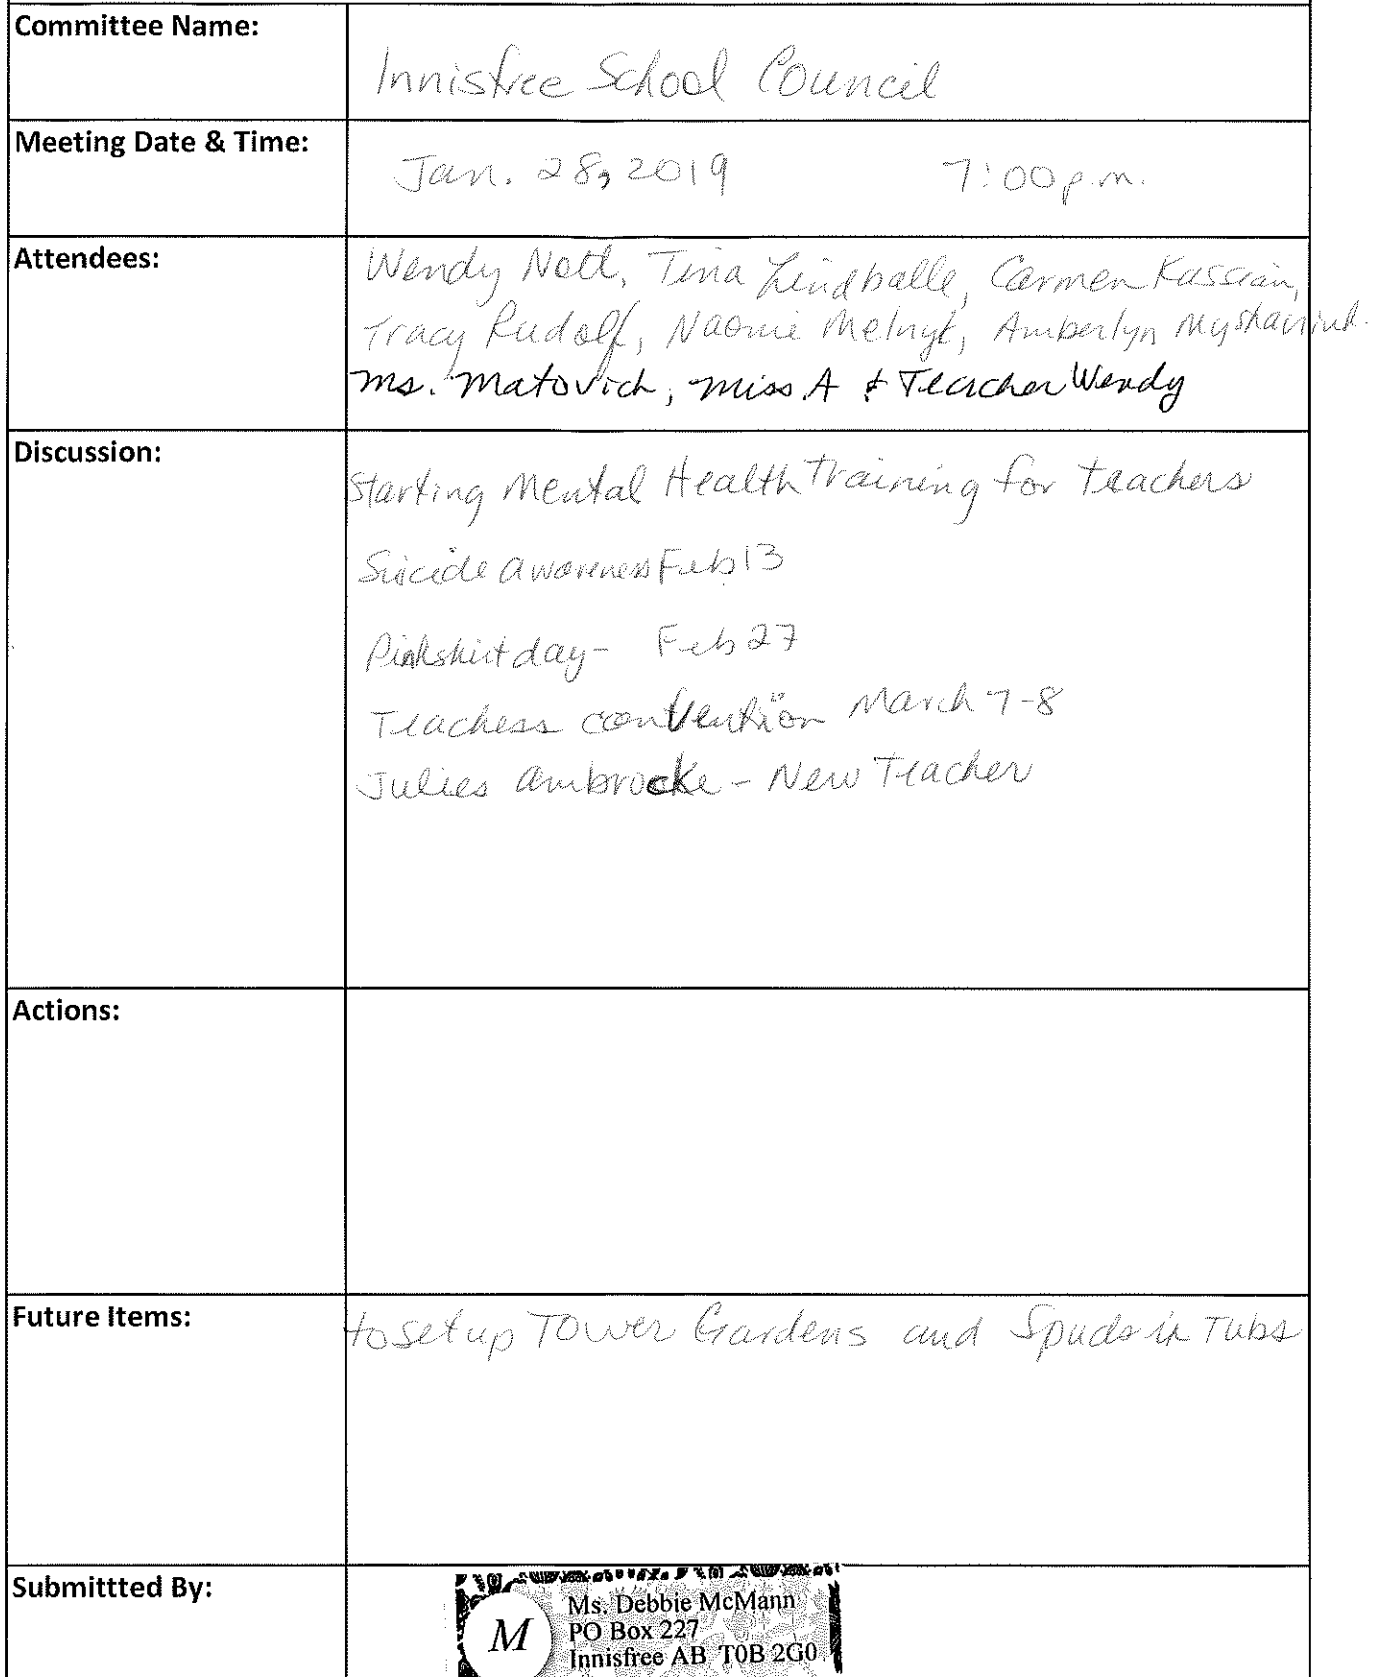 Committee Name:
Innisfree School Council
Meeting Date & Time:
Jan. 28, 2019 7:00 p.m.
Attendees:
Wendy Nott, Tina Lindballe, Carmen Kassian,
Tracy Rudolf, Naomie Melnyk, Amberlyn
Ms. Matovich, Miss A & Teacher Wendy
Discussion:
Starting Mental Health Training for teachers
Suicide awareness Feb 13
Pinkshirt day - Feb 27
Teachers convention March 7-8
Julies Ambrocke - New Teacher
Actions:
Future Items:
to set up Tower Gardens and Spuds in Tubs
Submittted By:
Ms. Debbie McMann
M
PO Box 227
Innisfree AB T0B 2G0